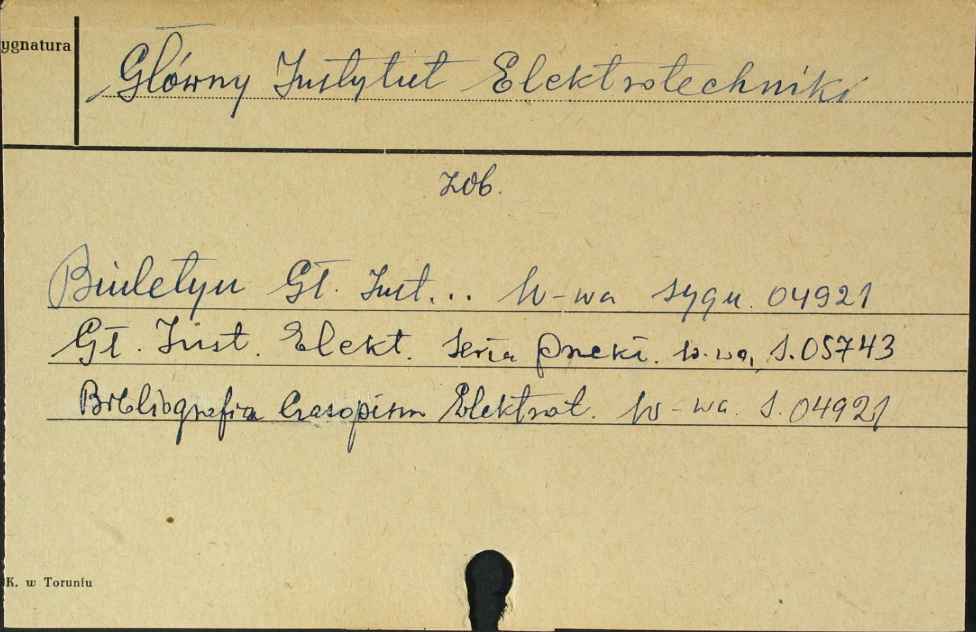 ygnatura
Główny Instytut Elektrotechniki
zob.
Biuletyn Gł. Inst... W-wa sygn. 04921
Gł. Inst. Elekt. Seria W-wa, S.05743
Bibliografia Czasopism Elektrot. W-wa. S.04921
K. w Toruniu